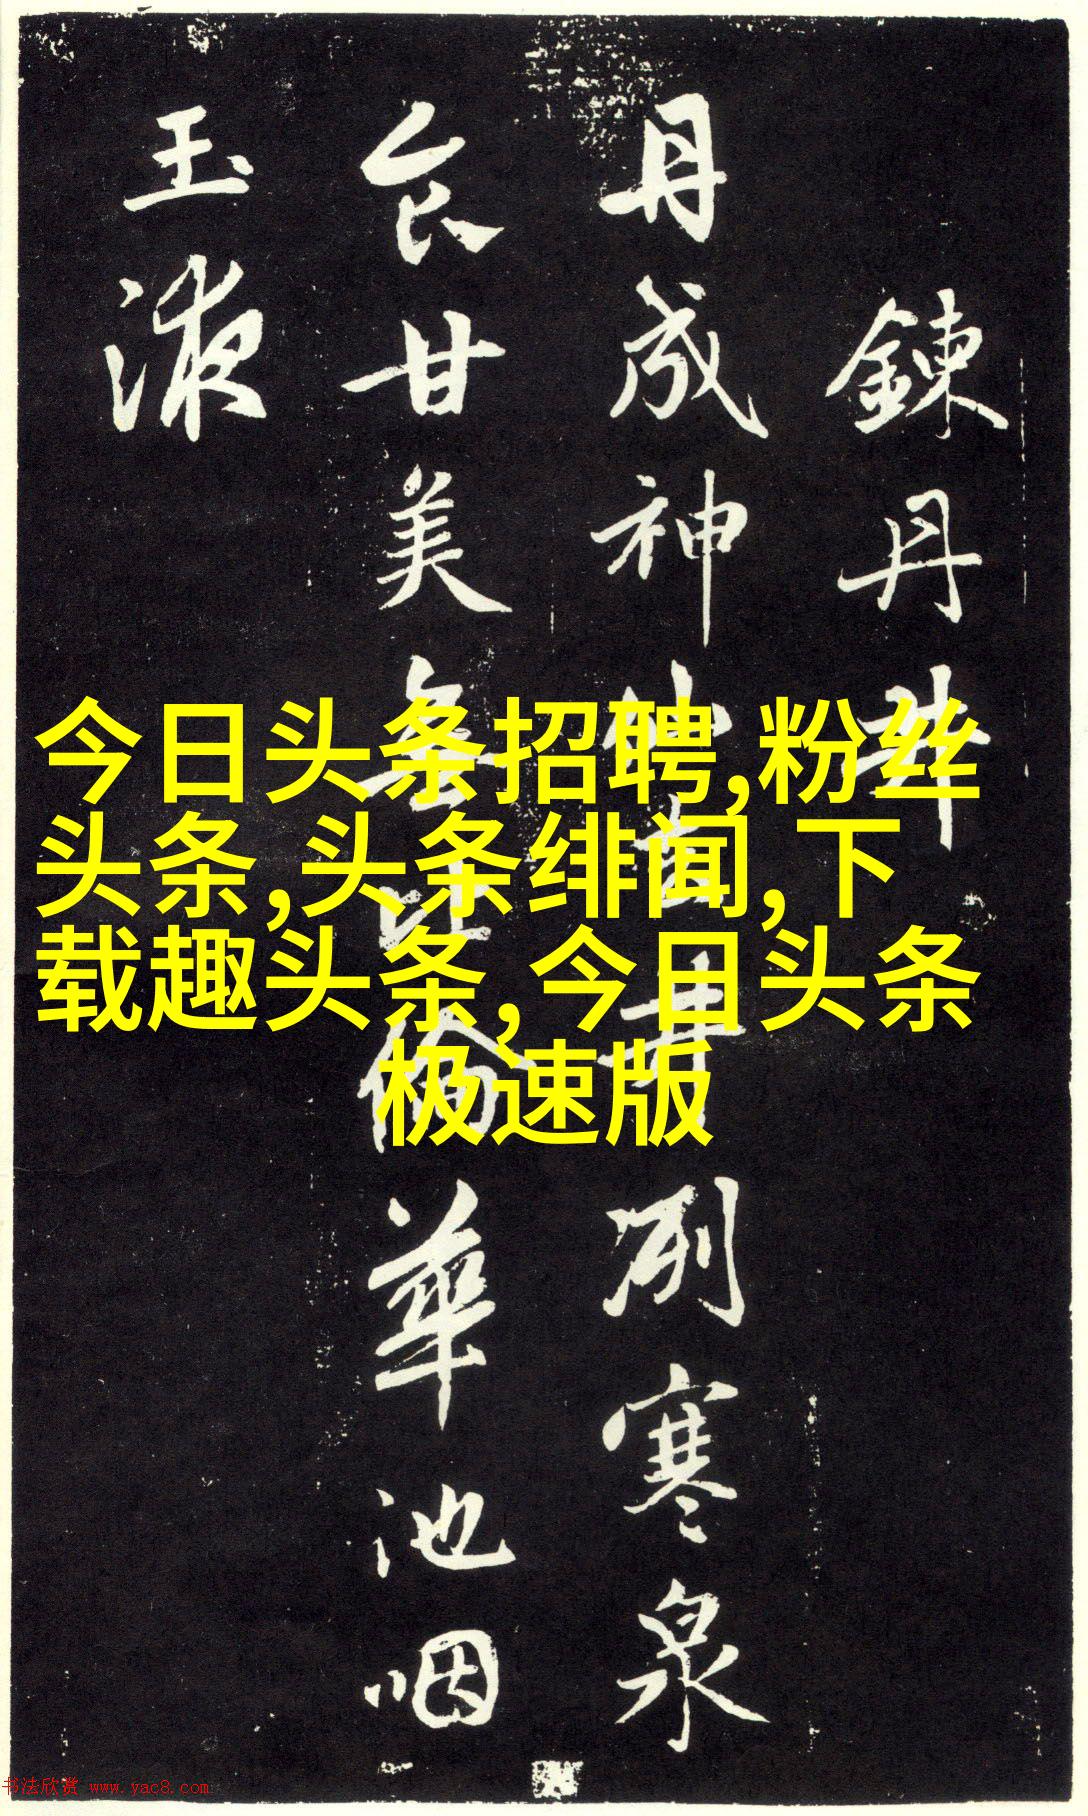 鍊丹井
丹成神
井冽寒泉
食甘美無比倫華池咽
玉液
今日头条招聘,粉丝
头条,头条绯闻,下
载趣头条,今日头条
极速版
书法欣赏 www.yac8.com